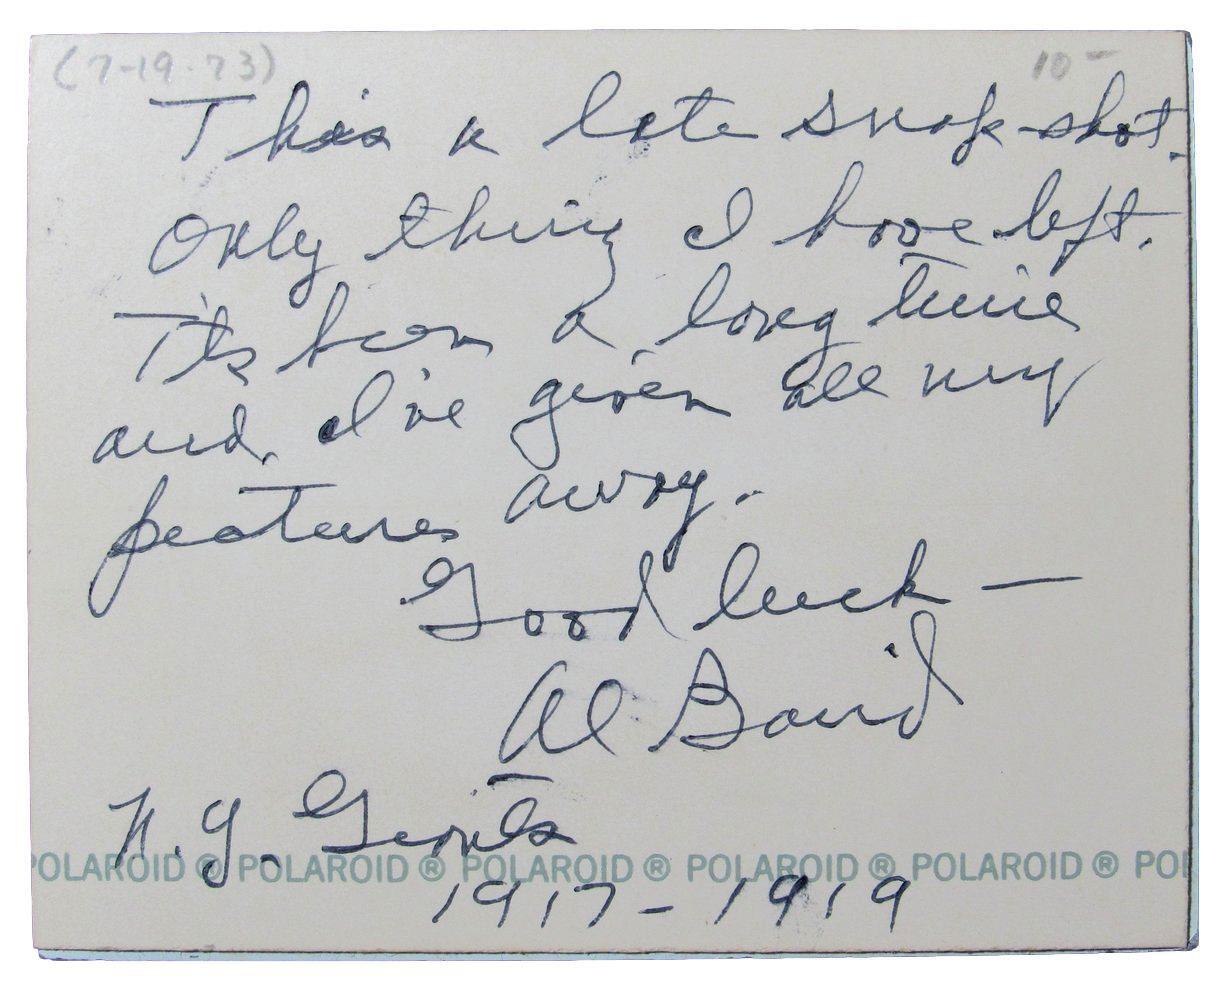 (7-19-73) 10-
This a late snap-shot.
Only thing I have left.
It's been a long time
and I've given all my
pictures away.
Good luck —
Al Baird
N.Y. Giants
POLAROID ® POLAROID ® POLAROID ® POLAROID ® POLAROID ® POL
1917-1919